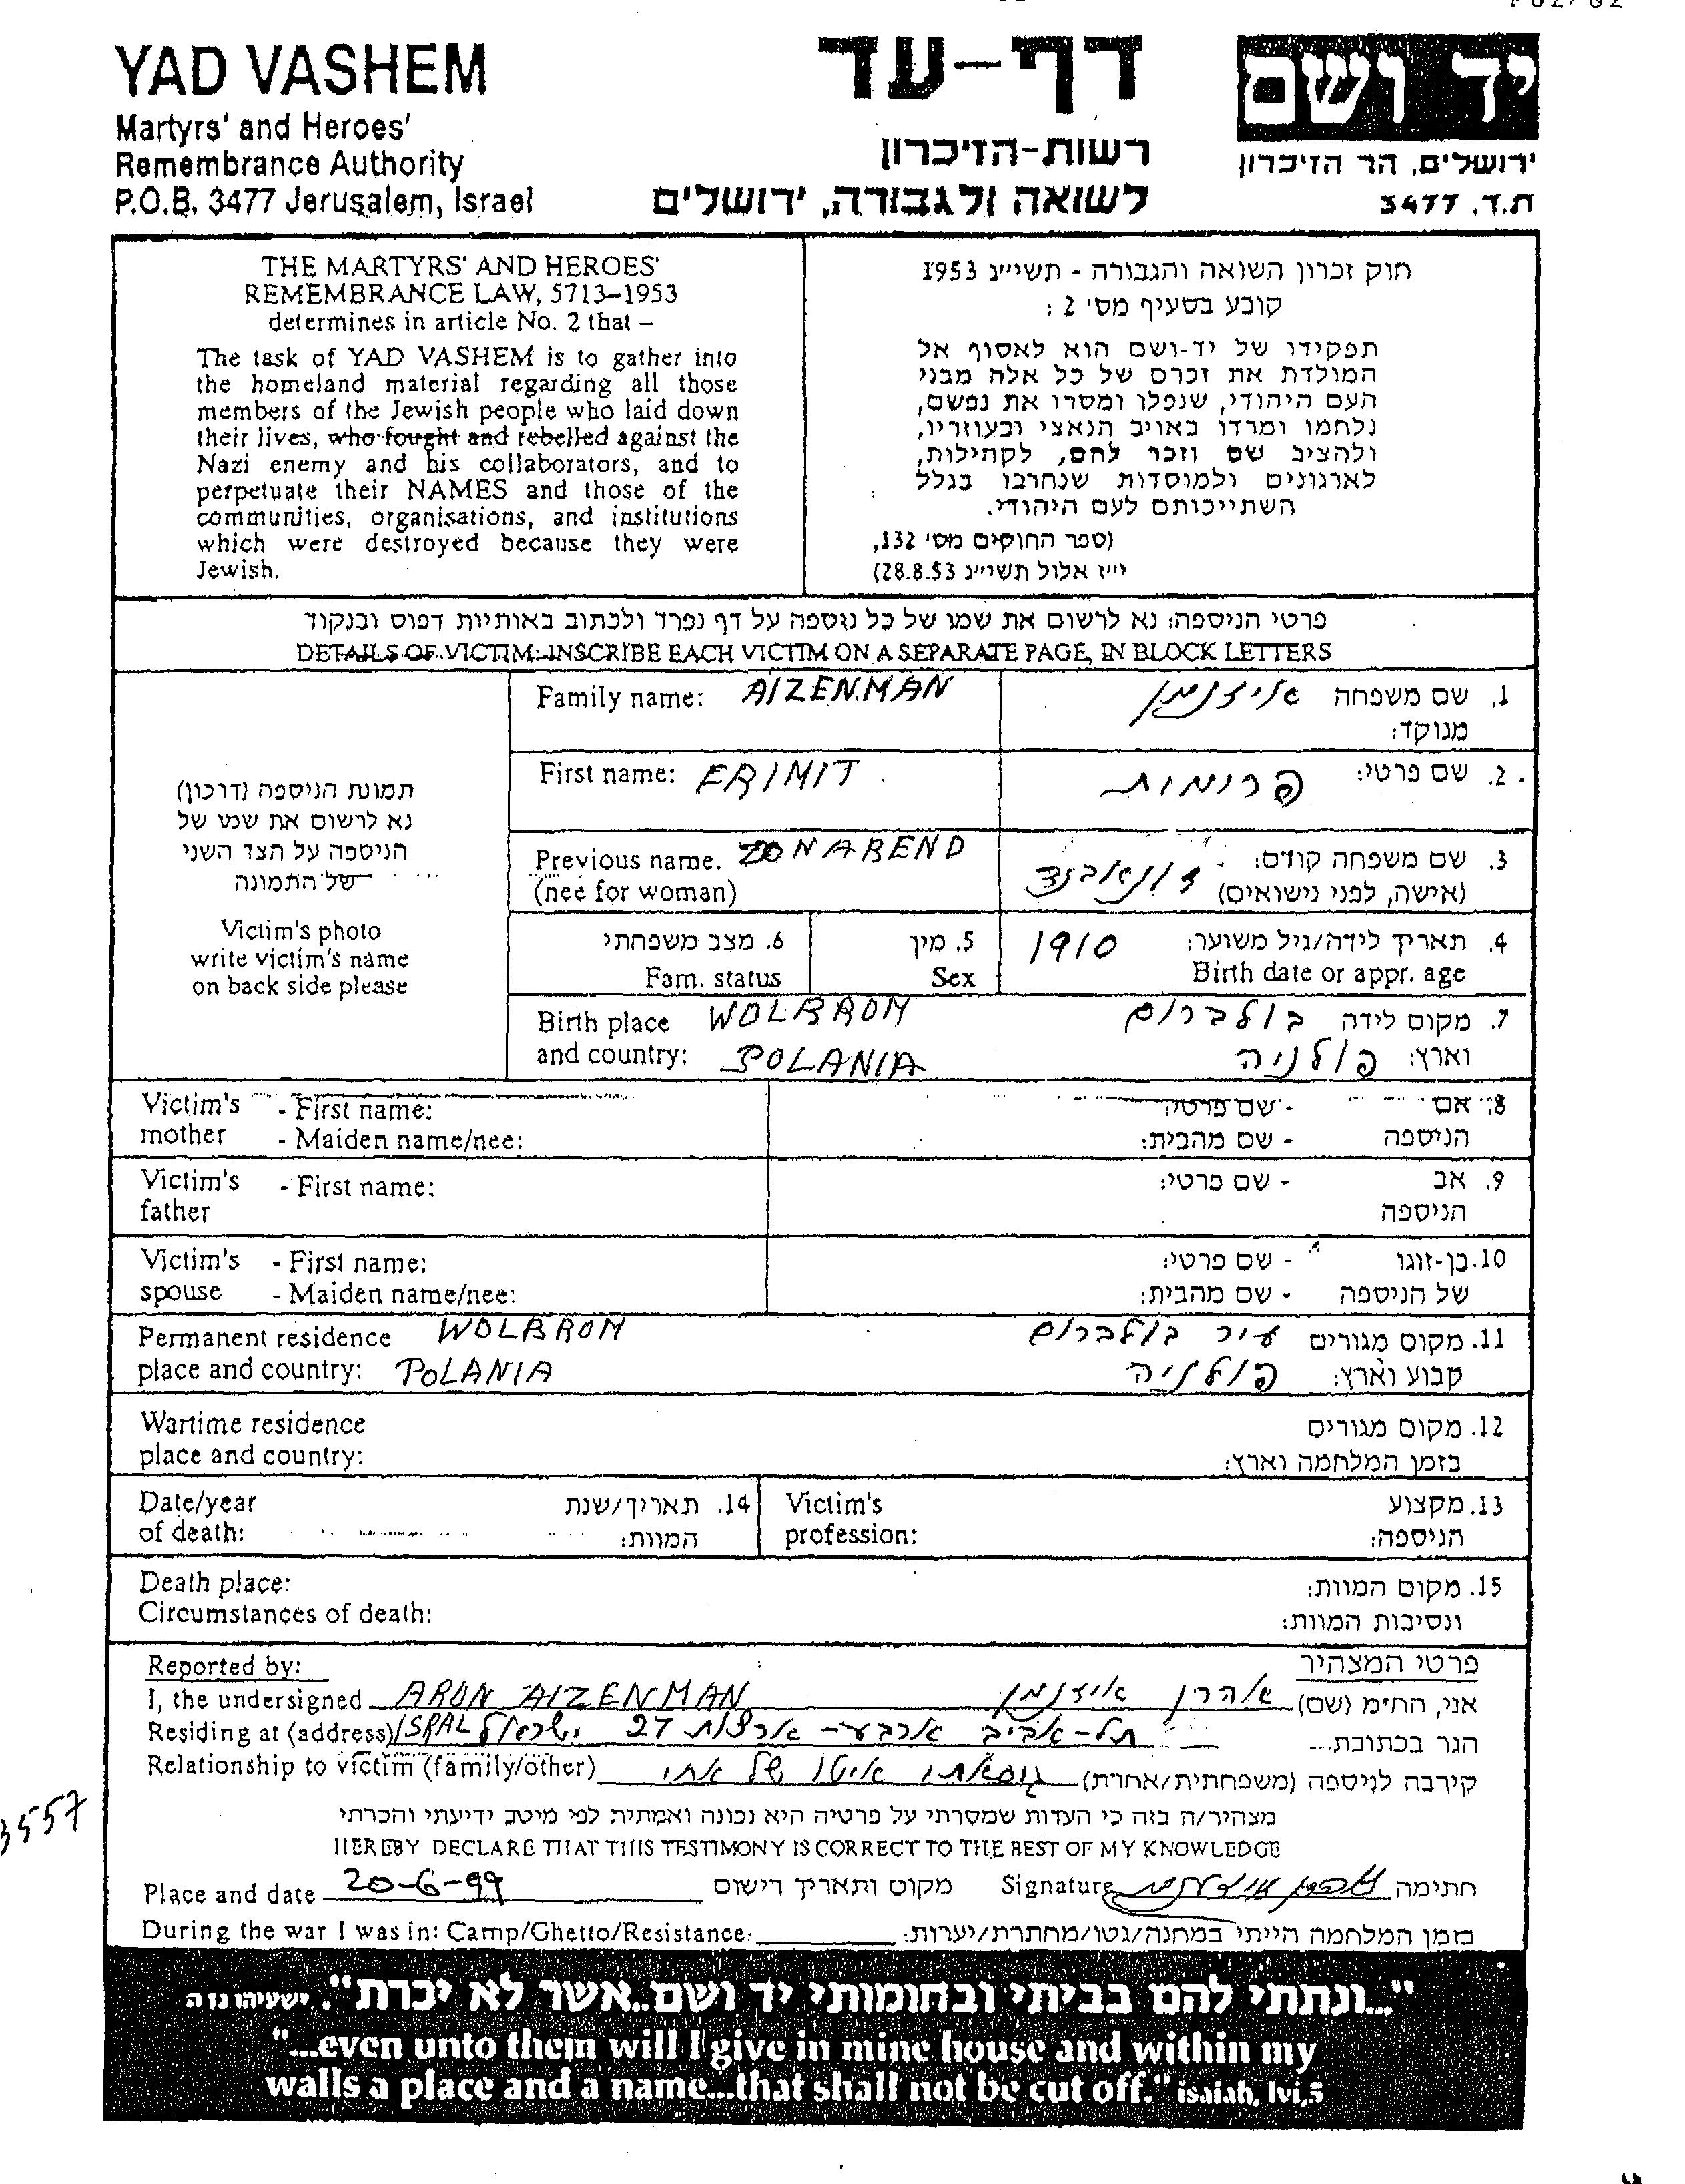 YAD VASHEM
Martyrs' and Heroes'
Remembrance Authority
P.O.B. 3477 Jerusalem, Israel
דף-עד
רשות-הזיכרון
לשואה ולגבורה, ירושלים
יד ושם
ירושלים, הר הזיכרון
ת.ד. 3477
THE MARTYRS' AND HEROES'
REMEMBRANCE LAW, 5713–1953
determines in article No. 2 that –
The task of YAD VASHEM is to gather into
the homeland material regarding all those
members of the Jewish people who laid down
their lives, who fought and rebelled against the
Nazi enemy and his collaborators, and to
perpetuate their NAMES and those of the
communities, organisations, and institutions
which were destroyed because they were
Jewish.
חוק זכרון השואה והגבורה - תשי״ג 1953
קובע בסעיף מס' 2 :
תפקידו של יד-ושם הוא לאסוף אל
המולדת את זכרם של כל אלה מבני
העם היהודי, שנפלו ומסרו את נפשם,
נלחמו ומרדו באויב הנאצי ובעוזריו,
ולהציב שם וזכר להם, לקהילות,
לארגונים ולמוסדות שנחרבו בגלל
השתייכותם לעם היהודי.
(ספר החוקים מס' 132,
י״ז אלול תשי״ג 28.8.53)
פרטי הניספה: נא לרשום את שמו של כל נוספה על דף נפרד ולכתוב באותיות דפוס ובנקוד
DETAILS OF VICTIM: INSCRIBE EACH VICTIM ON A SEPARATE PAGE, IN BLOCK LETTERS
תמונת הניספה (דרכון)
נא לרשום את שמו של
הניספה על הצד השני
של התמונה
Victim's photo
write victim's name
on back side please
Family name: AIZENMAN
1. שם משפחה אייזנמן
מנוקד:
First name: FRIMIT
2. שם פרטי: פרימית
Previous name. ZONABEND
(nee for woman)
3. שם משפחה קודם: זונאבנד
(אישה, לפני נישואים)
6. מצב משפחתי
Fam. status
5. מין
Sex
4. תאריך לידה/גיל משוער: 1910
Birth date or appr. age
Birth place WOLBROM
and country: POLANIA
7. מקום לידה בולברום
וארץ: פולניה
Victim's - First name:
mother - Maiden name/nee:
8. אם - שם פרטי:
הניספה - שם מהבית:
Victim's - First name:
father
9. אב - שם פרטי:
הניספה
Victim's - First name:
spouse - Maiden name/nee:
10. בן-זוגו - שם פרטי:
של הניספה - שם מהבית:
Permanent residence WOLBROM
place and country: POLANIA
11. מקום מגורים עיר בולברום
קבוע וארץ: פולניה
Wartime residence
place and country:
12. מקום מגורים
בזמן המלחמה וארץ:
Date/year
of death:
14. תאריך/שנת
המוות:
Victim's
profession:
13. מקצוע
הניספה:
Death place:
Circumstances of death:
15. מקום המוות:
ונסיבות המוות:
Reported by:
פרטי המצהיר
I, the undersigned ARON AIZENMAN אהרן אייזנמן אני, החי״מ (שם)
Residing at (address) ISRAL ישראל 27 תל-אביב ארבע-ארצות הגר בכתובת
Relationship to victim (family/other) גיסאתי אישתו של אחי קירבה לניספה (משפחתית/אחרת)
3557
מצהיר/ה בזה כי העדות שמסרתי על פרטיה היא נכונה ואמתית לפי מיטב ידיעתי והכרתי
HEREBY DECLARE THAT THIS TESTIMONY IS CORRECT TO THE BEST OF MY KNOWLEDGE
Place and date 20-6-99 מקום ותאריך רישום Signature חתימה
During the war I was in: Camp/Ghetto/Resistance: בזמן המלחמה הייתי במחנה/גטו/מחתרת/יערות:
"...ונתתי להם בביתי ובחומותי יד ושם..אשר לא יכרת". ישעיהו נו ה
"...even unto them will I give in mine house and within my
walls a place and a name...that shall not be cut off." isaiah, lvi,5